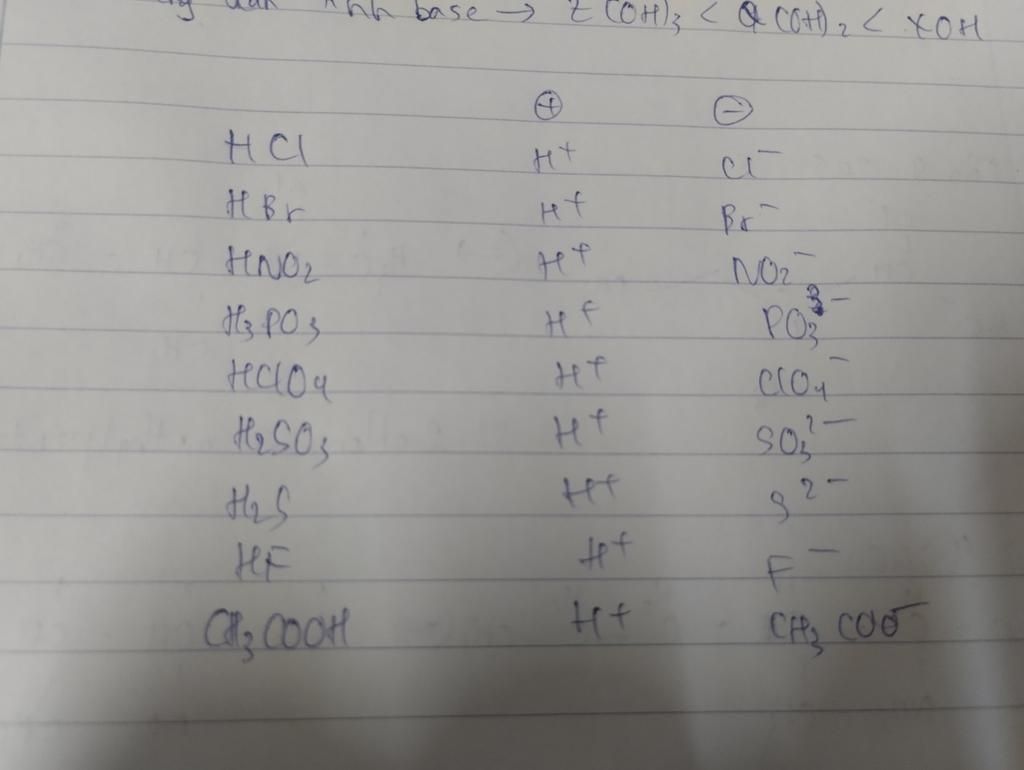 dần tính base → Z(OH)₃ < Q(OH)₂ < XOH
⊕ ⊖
HCl H⁺ Cl⁻
HBr H⁺ Br⁻
HNO₂ H⁺ NO₂⁻
H₃PO₃ H⁺ PO₃³⁻
HClO₄ H⁺ ClO₄⁻
H₂SO₃ H⁺ SO₃²⁻
H₂S H⁺ S²⁻
HF H⁺ F⁻
CH₃COOH H⁺ CH₃COO⁻